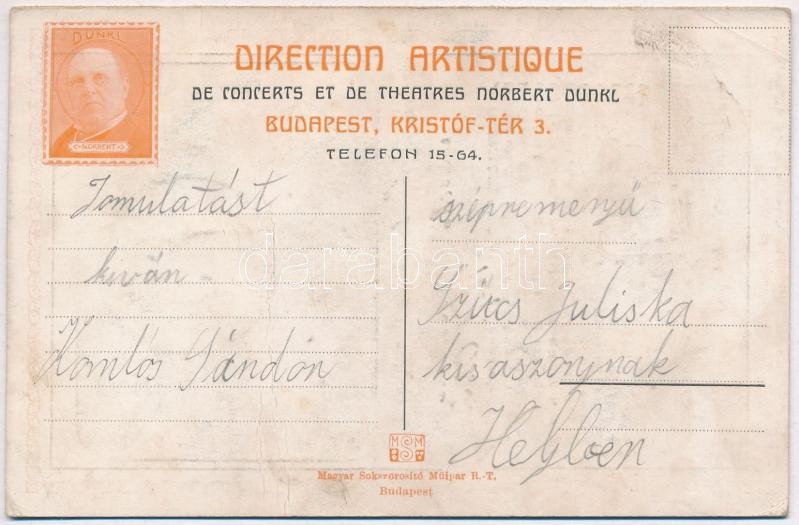 DUNKL
NORBERT
DIRECTION ARTISTIQUE
DE CONCERTS ET DE THEATRES NORBERT DUNKL
BUDAPEST, KRISTÓF-TÉR 3.
TELEFON 15-64.
Jomulatást
kiván
Komlós Sándor
szépremenyü
Szücs Juliska
kisaszonynak
Helyben
darabanth
Magyar Sokszorosító Műipar R.-T.
Budapest